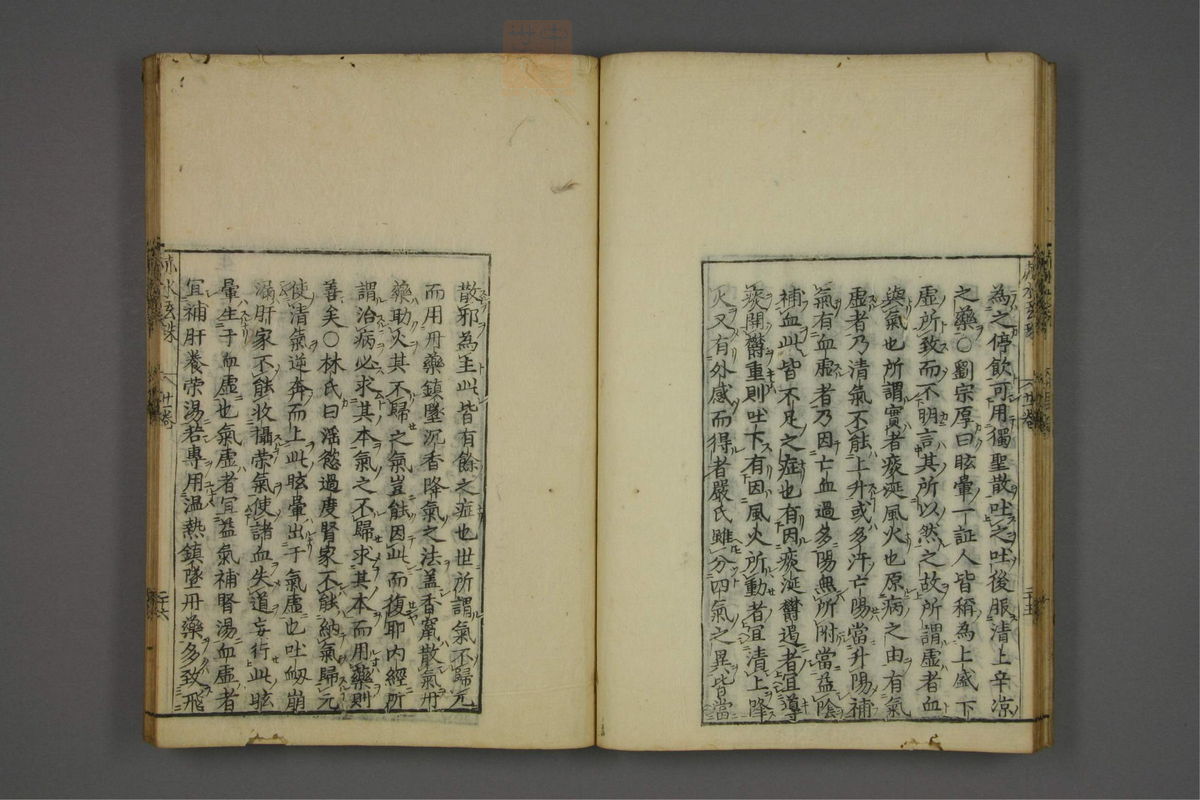 為之停飲可用獨聖散吐之吐後服清上辛凉
之藥○劉宗厚曰眩暈一証人皆稱為上盛下
虛所致而不明言其所以然之故所謂虛者血
與氣也所謂實者痰涎風火也原病之由有氣
虛者乃清氣不能上升或多汗亡陽當升陽補
氣有血虛者乃因亡血過多陽無所附當益陰
補血此皆不足之症也有因痰涎欝遏者宜導
痰開欝重則吐下有因風火所動者宜清上降
火又有外感而得者嚴氏雖分四氣之異皆當
二十五
赤水玄珠
十六卷
二十六
散邪為主此皆有餘之症也世所謂氣不歸元
而用丹藥鎮墜沉香降氣之法盖香竄散氣丹
藥助火其不歸之氣豈能因此而復耶内經所
謂治病必求其本氣之不歸求其本而用藥則
善矣○林氏曰淫慾過度腎家不能納氣歸元
使清氣逆奔而上此眩暈出于氣虛也吐衂崩
漏肝家不能收攝荣氣使諸血失道妄行此眩
暈生于血虛也氣虛者宜益氣補腎湯血虛者
宜補肝養荣湯若專用温熱鎮墜丹藥多致飛